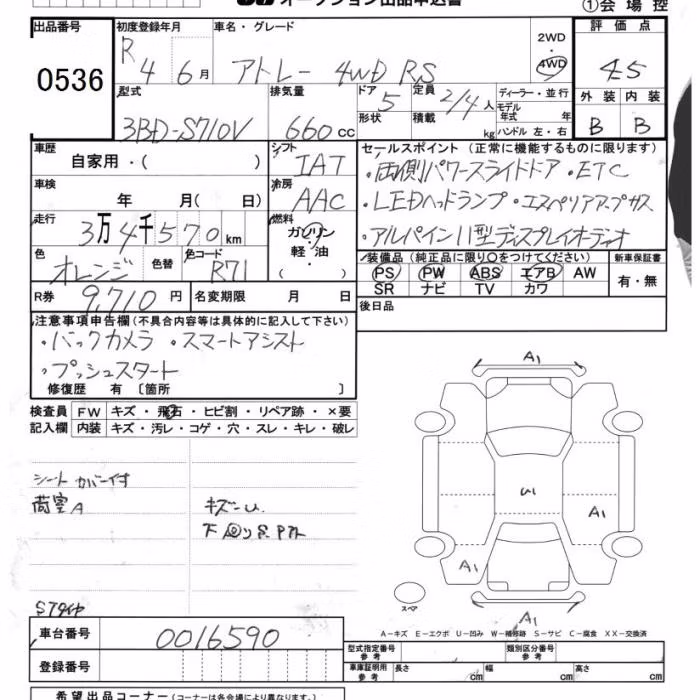 オークション出品申込書 ①会場控
出品番号 初度登録年月 車名・グレード 2WD・4WD 評価点
0536 R4 6月 アトレー 4WD RS 4.5
型式 排気量 ドア 5 定員 2/4人 ディーラー・並行 外装 内装
3BD-S710V 660cc 形状 積載 kg モデル年式 年 ハンドル 左・右 B B
車歴 自家用・( ) シフト IAT セールスポイント(正常に機能するものに限ります)
・両側パワースライドドア ・ETC
車検 年 月( 日) 冷房 AAC ・LEDヘッドランプ ・エスペリアアップサス
走行 3万4千570km 燃料 ガソリン・軽油・( ) ・アルパイン11型ディスプレイオーディオ
色 オレンジ 色替 色コード R71 装備品(純正品に限り○をつけてください) 新車保証書
PS PW ABS エアB AW 有・無
SR ナビ TV カワ
R券 9,710円 名変期限 月 日 後日品
注意事項申告欄(不具合内容等は具体的に記入して下さい)
・バックカメラ ・スマートアシスト
・プッシュスタート
修復歴 有 〔箇所 〕
検査員 FW キズ・飛石・ヒビ割・リペア跡・×要
記入欄 内装 キズ・汚レ・コゲ・穴・スレ・キレ・破レ
シートカバー付
荷室A キズーU
下回りS.Pアト
A1
U1
A1
A1
A1
スペア
Sタイヤ
A―キズ E―エクボ U―凹み W―補修跡 S―サビ C―腐食 XX―交換済
車台番号 0016590 型式指定番号 参考 類別区分番号 参考
登録番号 車庫証明用 参考 長さ cm 幅 cm 高さ cm
希望出品コーナー(コーナーは各会場により異なります。)